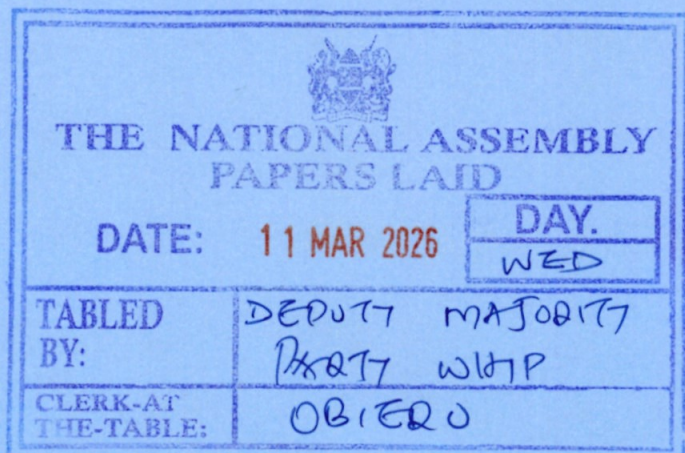 THE NATIONAL ASSEMBLY
PAPERS LAID
DATE: 11 MAR 2026
DAY.
WED
TABLED BY:
DEPUTY MAJORITY
PARTY WHIP
CLERK-AT THE-TABLE:
OBIERO